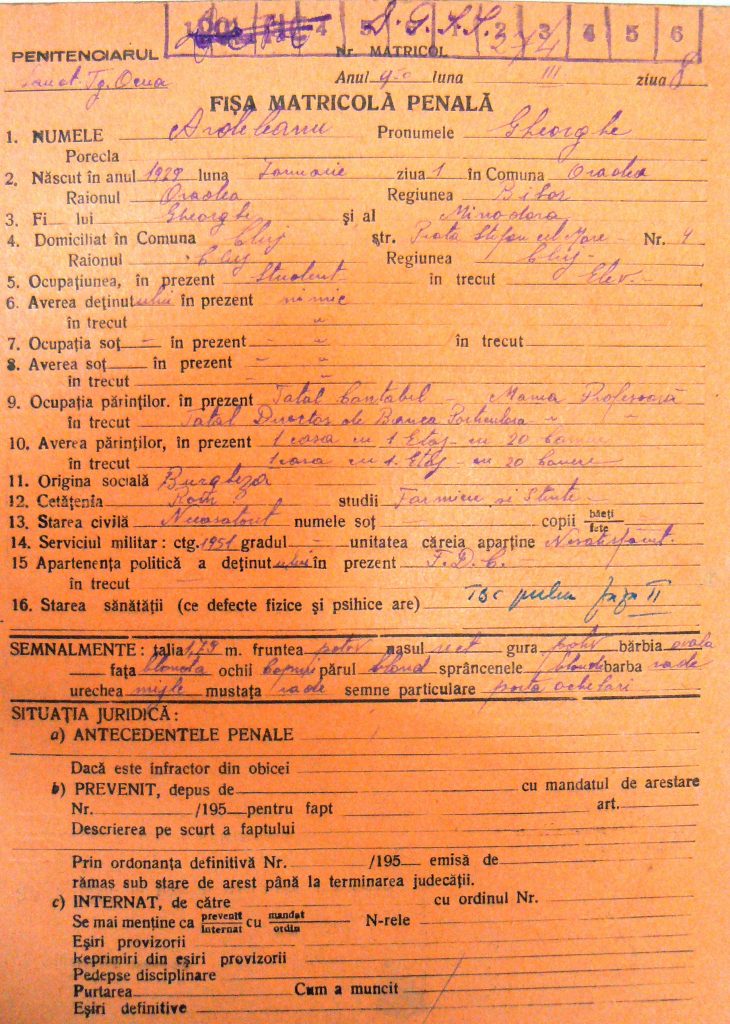 D.G.S.S.
4 5 2 3 4 5 6
PENITENCIARUL Nr. MATRICOL 274
Sanat. Tg. Ocna Anul luna III ziua 8
FIȘA MATRICOLĂ PENALĂ
1. NUMELE Ardeleanu Pronumele Gheorghe
Porecla
2. Născut în anul 1929 luna Ianuarie ziua 1 în Comuna Oradea
Raionul Oradea Regiunea Bihor
3. Fi lui Gheorghe și al Minodora
4. Domiciliat în Comuna Cluj str. Piata Stefan cel Mare Nr. 4
Raionul Cluj Regiunea Cluj -
5. Ocupațiunea, în prezent Student în trecut Elev. -
6. Averea deținutului în prezent nimic
în trecut "
7. Ocupația soț - în prezent - " în trecut
8. Averea soț în prezent - "
în trecut - "
9. Ocupația părinților. în prezent Tatal Contabil - Mama Profesoară
în trecut Tatal Director de Banca Particulara "
10. Averea părinților, în prezent 1 casa cu 1 Etaj - cu 20 Camere
în trecut 1 casa cu 1. Etaj - cu 20 Camere
11. Origina socială Burgheza
12. Cetățenia Rom studii
13. Starea civilă Necasatorit numele soț - copii băeți
fete
14. Serviciul militar: ctg. 1951 gradul - unitatea căreia aparține Nesatisfăcut.
15 Apartenența politică a deținutului în prezent F.D.C.
în trecut -
16. Starea sănătății (ce defecte fizice și psihice are) TBC pulm faza II
SEMNALMENTE: talia 1,79 m. fruntea potriv nasul rect gura potriv bărbia ovala
fața blonda ochii Caprui părul blond sprâncenele blonde barba rade
urechea mijle mustața rade semne particulare porta ochelari
SITUAȚIA JURIDICĂ:
a) ANTECEDENTELE PENALE
Dacă este infractor din obicei
b) PREVENIT, depus de cu mandatul de arestare
Nr. /195 pentru fapt art.
Descrierea pe scurt a faptului
Prin ordonanța definitivă Nr. /195 emisă de
rămas sub stare de arest până la terminarea judecății.
c) INTERNAT, de către cu ordinul Nr.
Se mai menține ca prevenit cu mandat N-rele
internat ordin
Eșiri provizorii
Reprimiri din eșiri provizorii
Pedepse disciplinare
Purtarea Cum a muncit
Eșiri definitive